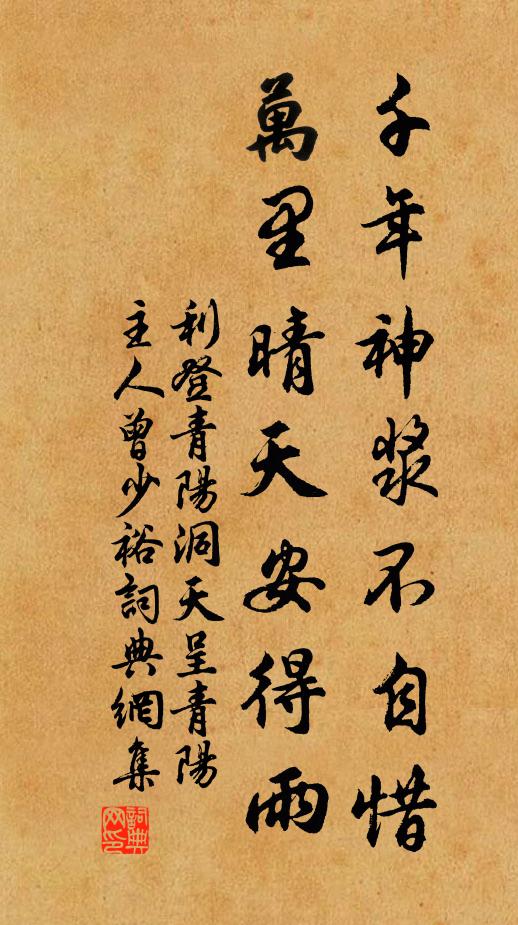 千年神漿不自惜
萬里晴天安得雨
利登青陽洞天呈青陽
主人曾少裕詞典網集
詞典网印